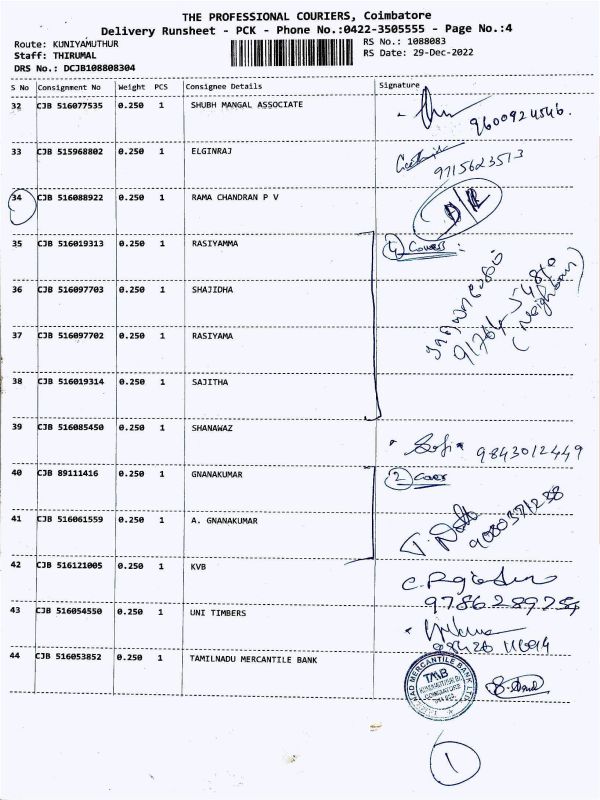 THE PROFESSIONAL COURIERS, Coimbatore
Delivery Runsheet - PCK - Phone No.:0422-3505555 - Page No.:4
Route: KUNIYAMUTHUR
Staff: THIRUMAL
DRS No.: DCJB108808304
RS No.: 1088083
RS Date: 29-Dec-2022
S No Consignment No Weight PCS Consignee Details Signature
32 CJB 516077535 0.250 1 SHUBH MANGAL ASSOCIATE
9600924546.
33 CJB 515968802 0.250 1 ELGINRAJ
9715623513
34 CJB 516088922 0.250 1 RAMA CHANDRAN P V
D/R
35 CJB 516019313 0.250 1 RASIYAMMA
4 Covers :
36 CJB 516097703 0.250 1 SHAJIDHA
91764 54870
(Neighbour)
37 CJB 516097702 0.250 1 RASIYAMA
38 CJB 516019314 0.250 1 SAJITHA
39 CJB 516085450 0.250 1 SHANAWAZ
Sofia 9843012449
40 CJB 89111416 0.250 1 GNANAKUMAR
2
41 CJB 516061559 0.250 1 A. GNANAKUMAR
42 CJB 516121005 0.250 1 KVB
43 CJB 516054550 0.250 1 UNI TIMBERS
44 CJB 516053852 0.250 1 TAMILNADU MERCANTILE BANK
TMB
1